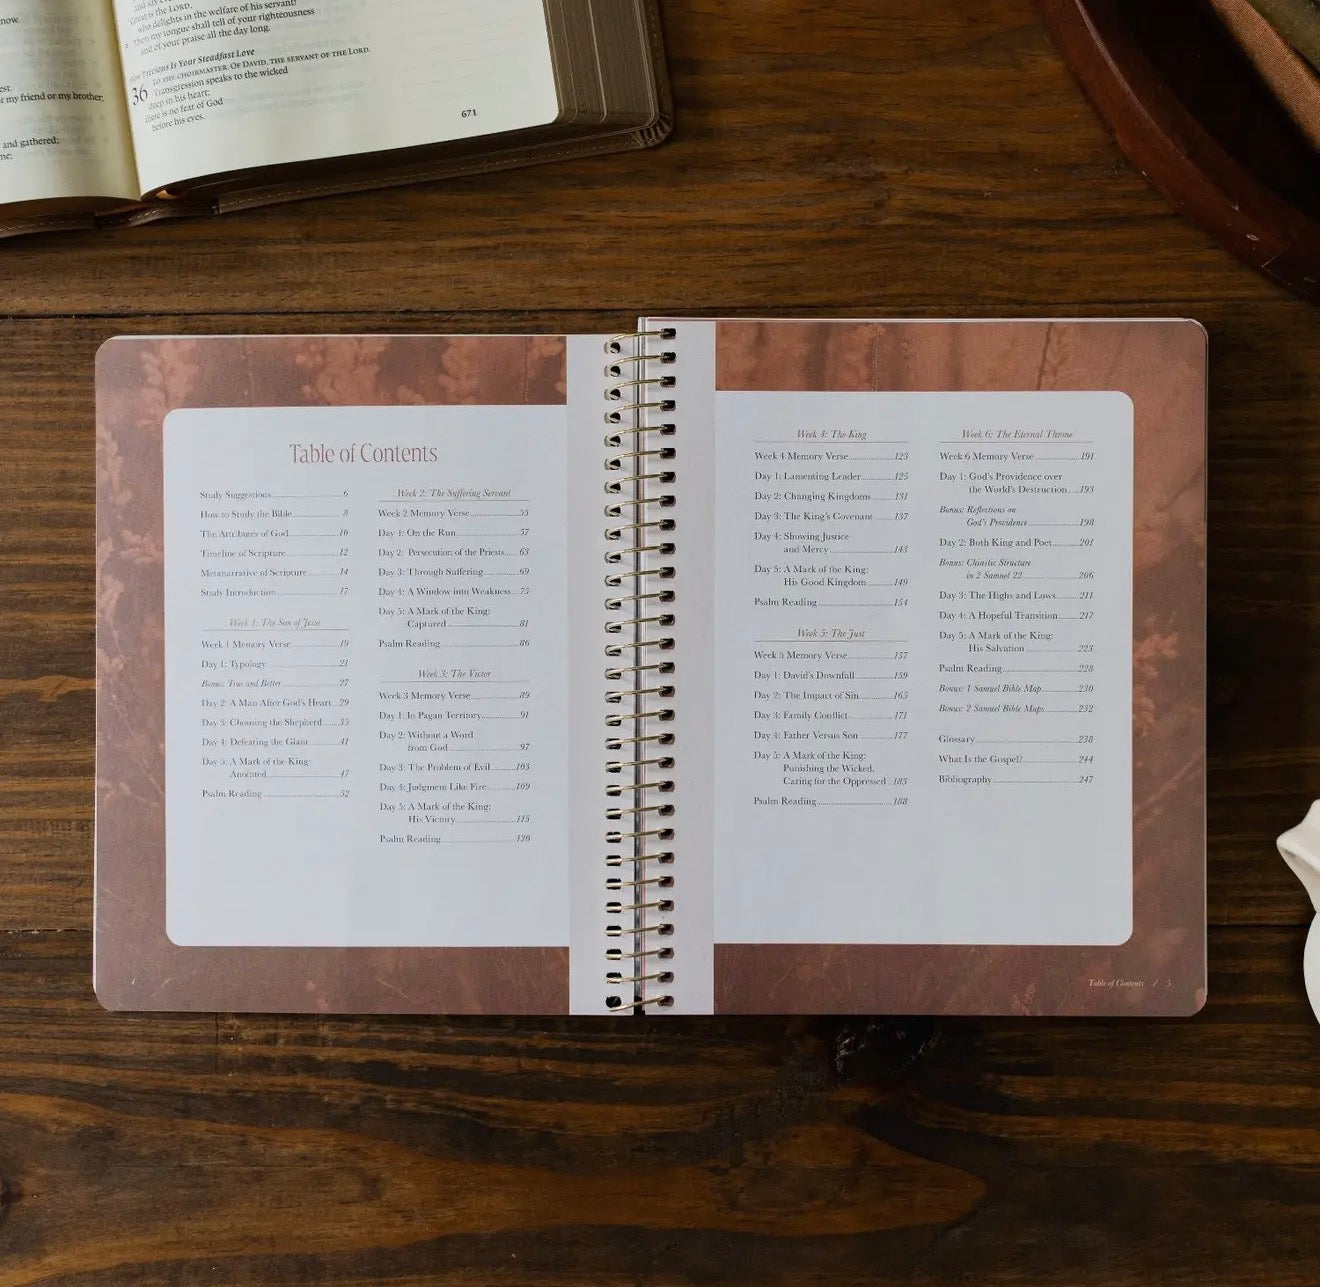 now.
est.
r my friend or my brother;
and gathered;
me;
Great is the LORD,
who delights in the welfare of his servant!
Then my tongue shall tell of your righteousness
and of your praise all the day long.
Precious Is Your Steadfast Love
36 TO THE CHOIRMASTER. OF DAVID, THE SERVANT OF THE LORD.
Transgression speaks to the wicked
deep in his heart;
there is no fear of God
before his eyes.
671
Table of Contents
Study Suggestions 6
How to Study the Bible 8
The Attributes of God 10
Timeline of Scripture 12
Metanarrative of Scripture 14
Study Introduction 17
Week 1: The Son of Jesse
Week 1 Memory Verse 19
Day 1: Typology 21
Bonus: True and Better 27
Day 2: A Man After God's Heart 29
Day 3: Choosing the Shepherd 35
Day 4: Defeating the Giant 41
Day 5: A Mark of the King:
Anointed 47
Psalm Reading 52
Week 2: The Suffering Servant
Week 2 Memory Verse 55
Day 1: On the Run 57
Day 2: Persecution of the Priests 63
Day 3: Through Suffering 69
Day 4: A Window into Weakness 75
Day 5: A Mark of the King:
Captured 81
Psalm Reading 86
Week 3: The Victor
Week 3 Memory Verse 89
Day 1: In Pagan Territory 91
Day 2: Without a Word
from God 97
Day 3: The Problem of Evil 103
Day 4: Judgment Like Fire 109
Day 5: A Mark of the King:
His Victory 115
Psalm Reading 120
Week 4: The King
Week 4 Memory Verse 123
Day 1: Lamenting Leader 125
Day 2: Changing Kingdoms 131
Day 3: The King's Covenant 137
Day 4: Showing Justice
and Mercy 143
Day 5: A Mark of the King:
His Good Kingdom 149
Psalm Reading 154
Week 5: The Just
Week 5 Memory Verse 157
Day 1: David's Downfall 159
Day 2: The Impact of Sin 165
Day 3: Family Conflict 171
Day 4: Father Versus Son 177
Day 5: A Mark of the King:
Punishing the Wicked,
Caring for the Oppressed 185
Psalm Reading 188
Week 6: The Eternal Throne
Week 6 Memory Verse 191
Day 1: God's Providence over
the World's Destruction 193
Bonus: Reflections on
God's Providence 198
Day 2: Both King and Poet 201
Bonus: Chiastic Structure
in 2 Samuel 22 206
Day 3: The Highs and Lows 211
Day 4: A Hopeful Transition 217
Day 5: A Mark of the King:
His Salvation 223
Psalm Reading 228
Bonus: 1 Samuel Bible Map 230
Bonus: 2 Samuel Bible Maps 232
Glossary 238
What Is the Gospel? 244
Bibliography 247
Table of Contents / 5